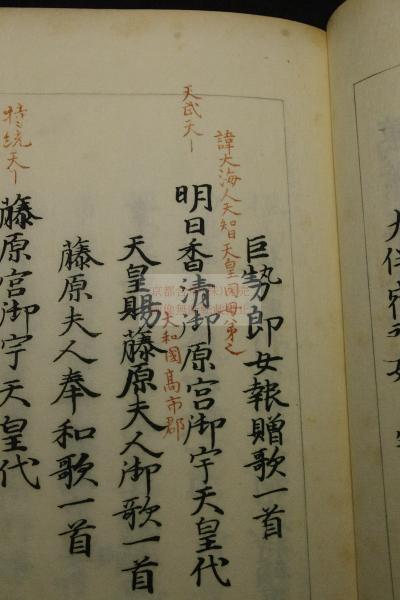 大伴宿
巨勢郎女報贈歌一首
諱大海人天智天皇同母弟也
天武天
明日香清御原宮御宇天皇代
大和國高市郡
天皇賜藤原夫人御歌一首
藤原夫人奉和歌一首
持統天
藤原宮御宇天皇代